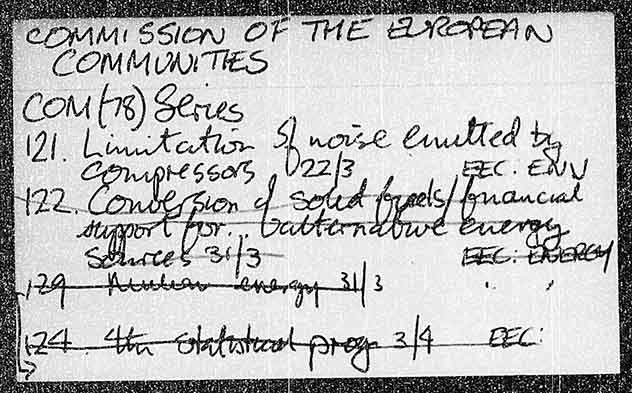 COMMISSION OF THE EUROPEAN
COMMUNITIES
COM(78) Series
121. Limitation of noise emitted by
compressors 22/3 EEC. ENV
122. Conversion of solid fuels/financial
support for... alternative energy
sources 31/3 EEC: ENERGY
129 Nuclear energy 31/3 " "
124. 4th statistical prog 3/4 EEC: